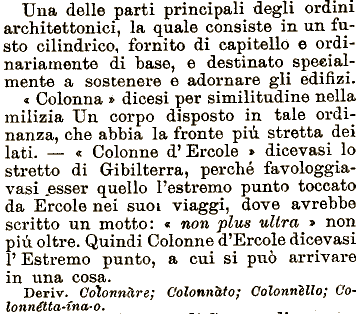 Una delle parti principali degli ordini
architettonici, la quale consiste in un fu-
sto cilindrico, fornito di capitello e ordi-
nariamente di base, e destinato special-
mente a sostenere e adornare gli edifizi.
« Colonna » dicesi per similitudine nella
milizia Un corpo disposto in tale ordi-
nanza, che abbia la fronte più stretta dei
lati. — « Colonne d' Ercole » dicevasi lo
stretto di Gibilterra, perché favoleggia-
vasi esser quello l'estremo punto toccato
da Ercole nei suoi viaggi, dove avrebbe
scritto un motto: « non plus ultra » non
più oltre. Quindi Colonne d'Ercole dicevasi
l' Estremo punto, a cui si può arrivare
in una cosa.
Deriv. Colonnàre; Colonnàto; Colonnèllo; Co-
lonnétta-ína-o.